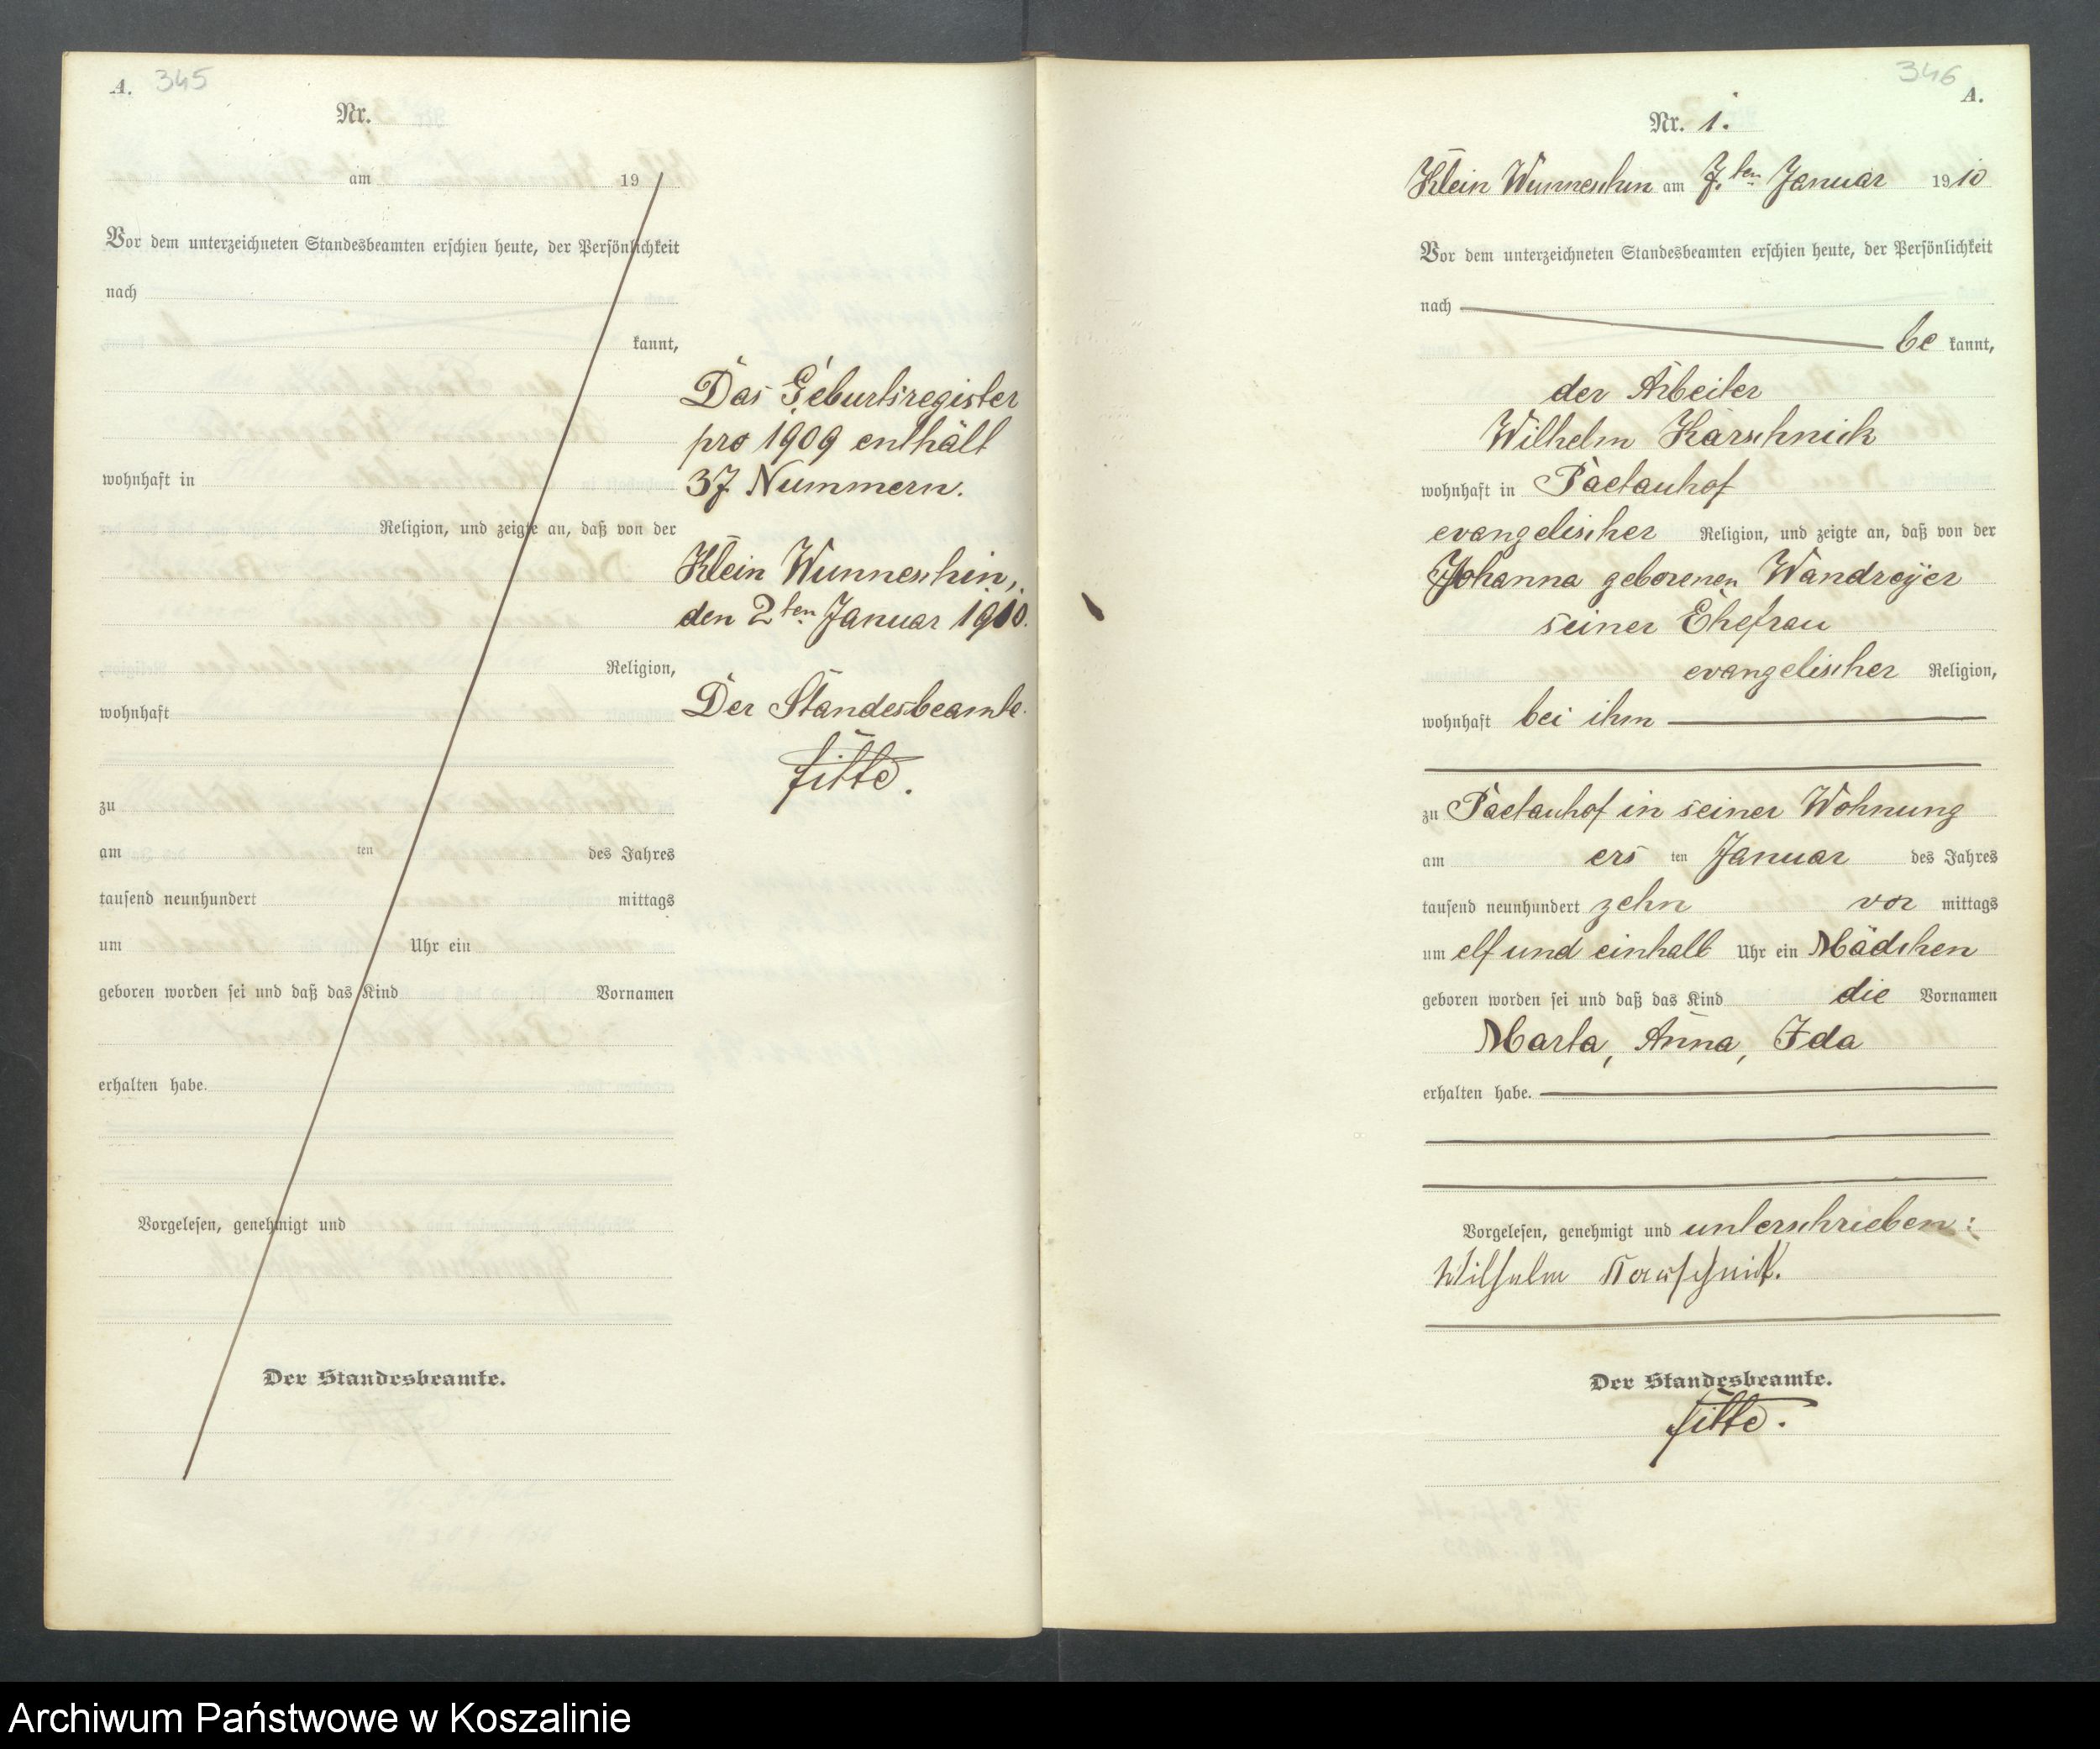 A. 345
Nr.
am 19
Vor dem unterzeichneten Standesbeamten erschien heute, der Persönlichkeit
nach
kannt,
wohnhaft in
Religion, und zeigte an, daß von der
Religion,
wohnhaft
zu
am ten des Jahres
tausend neunhundert mittags
um Uhr ein
geboren worden sei und daß das Kind Vornamen
erhalten habe.
Vorgelesen, genehmigt und
Der Standesbeamte.
Das Geburtsregister
pro 1909 enthält
37 Nummern.
Klein Wunneschin,
den 2ten Januar 1910.
Der Standesbeamte.
Fitte.
346 A.
Nr. 1.
Klein Wunneschin am 7ten Januar 1910
Vor dem unterzeichneten Standesbeamten erschien heute, der Persönlichkeit
nach
be kannt,
der Arbeiter
Wilhelm Karschnick
wohnhaft in Paetauhof
evangelischer Religion, und zeigte an, daß von der
Johanna geborenen Wandreyer
seiner Ehefrau
evangelischer Religion,
wohnhaft bei ihm
zu Paetauhof in seiner Wohnung
am ers ten Januar des Jahres
tausend neunhundert zehn vor mittags
um elf und einhalb Uhr ein Mädchen
geboren worden sei und daß das Kind die Vornamen
Marta, Anna, Ida
erhalten habe.
Vorgelesen, genehmigt und unterschrieben:
Wilhelm Karschnik.
Der Standesbeamte.
Fitte.
Archiwum Państwowe w Koszalinie